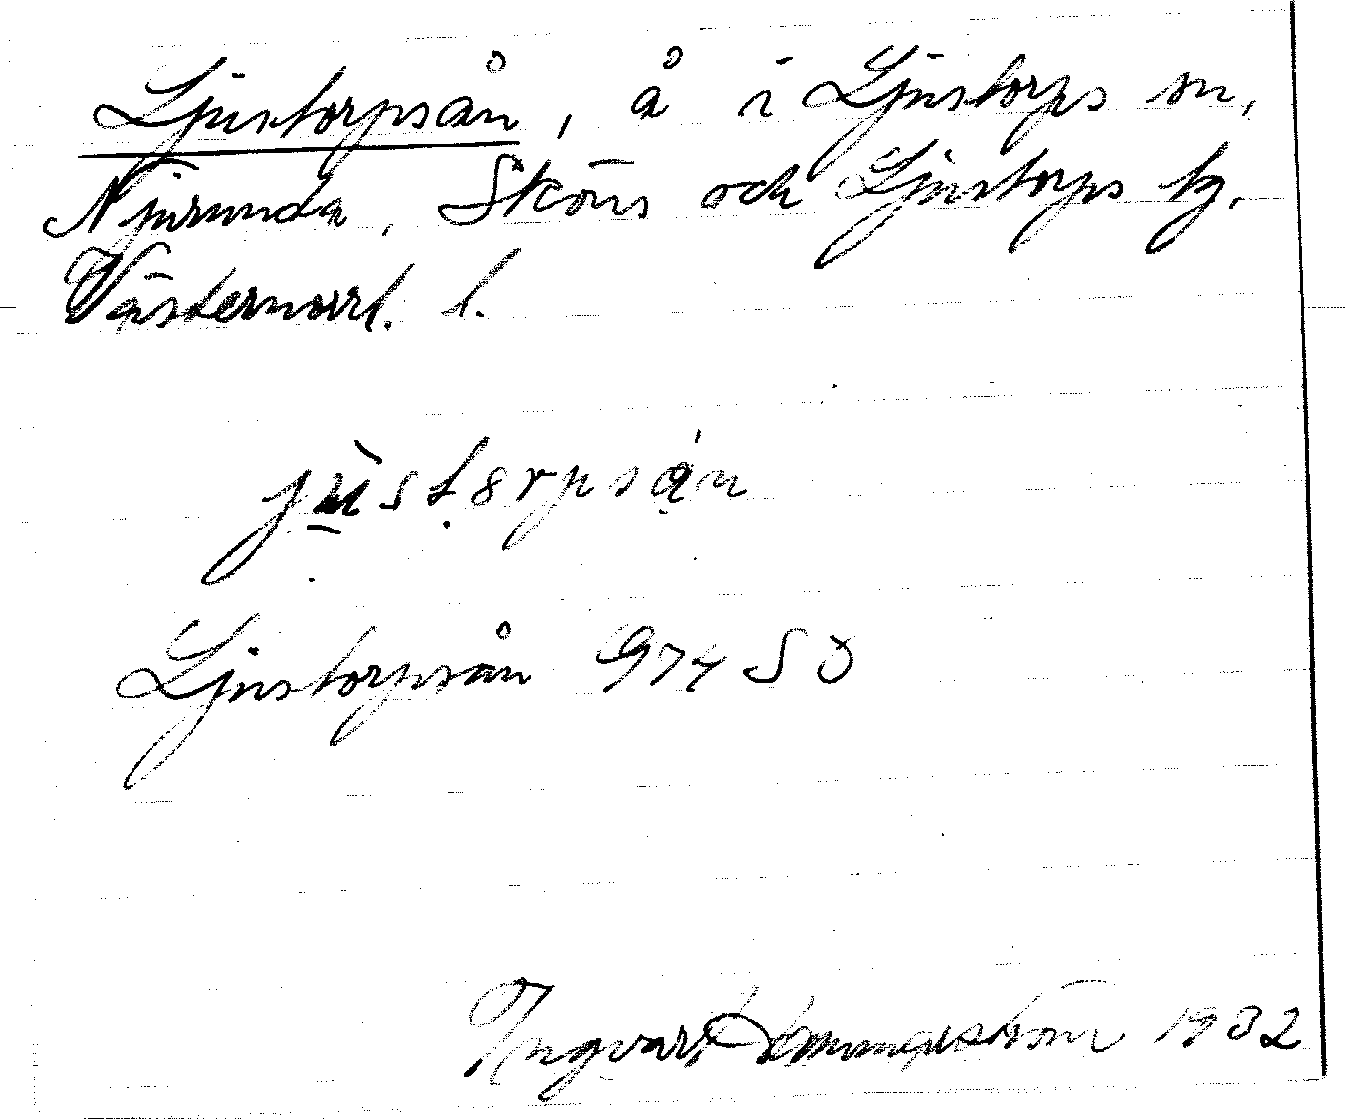 Ljustorpsån, å i Ljustorps sn,
Njurunda, Sköns och Ljustorps tg.
Västernorrl. l.
Ljustorpsån 974 SO
Ingvar 1932